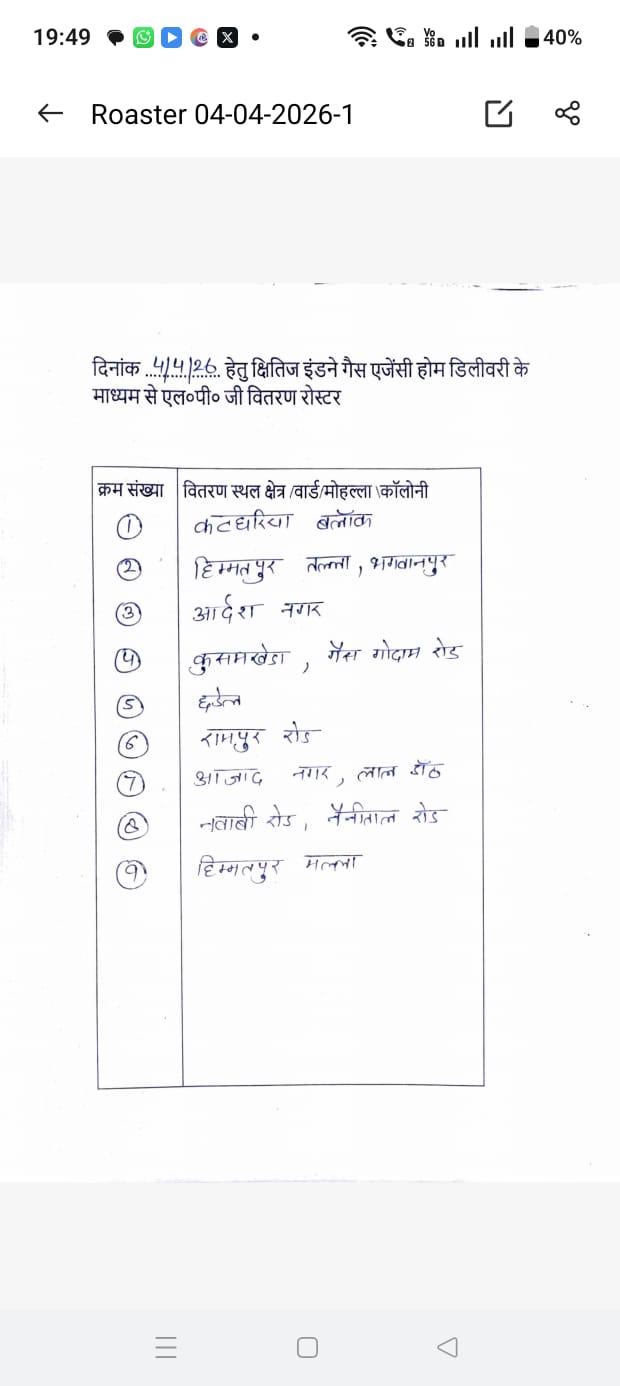 19:49
Vo 5G D
40%
Roaster 04-04-2026-1
दिनांक ..4/4/26.. हेतु क्षितिज इंडने गैस एजेंसी होम डिलीवरी के
माध्यम से एल०पी० जी वितरण रोस्टर
क्रम संख्या वितरण स्थल क्षेत्र /वार्ड/मोहल्ला \कॉलोनी
1 कठघरिया ब्लॉक
2 हिम्मतपुर तल्ला, भगवानपुर
3 आर्दश नगर
4 कुसमखेडा, गैस गोदाम रोड
5 छडेल
6 रामपुर रोड
7 आजाद नगर, लाल डॉठ
8 नवाबी रोड, नैनीताल रोड
9 हिम्मतपुर मल्ला